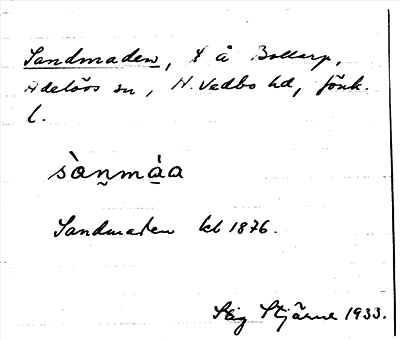 Sandmaden, t å Bollarp,
Adelövs sn, N. Vedbo hd, Jönk.
l.
sàn̰má̱a
Sandmaden kb 1876.
Stig Stjärne 1933.